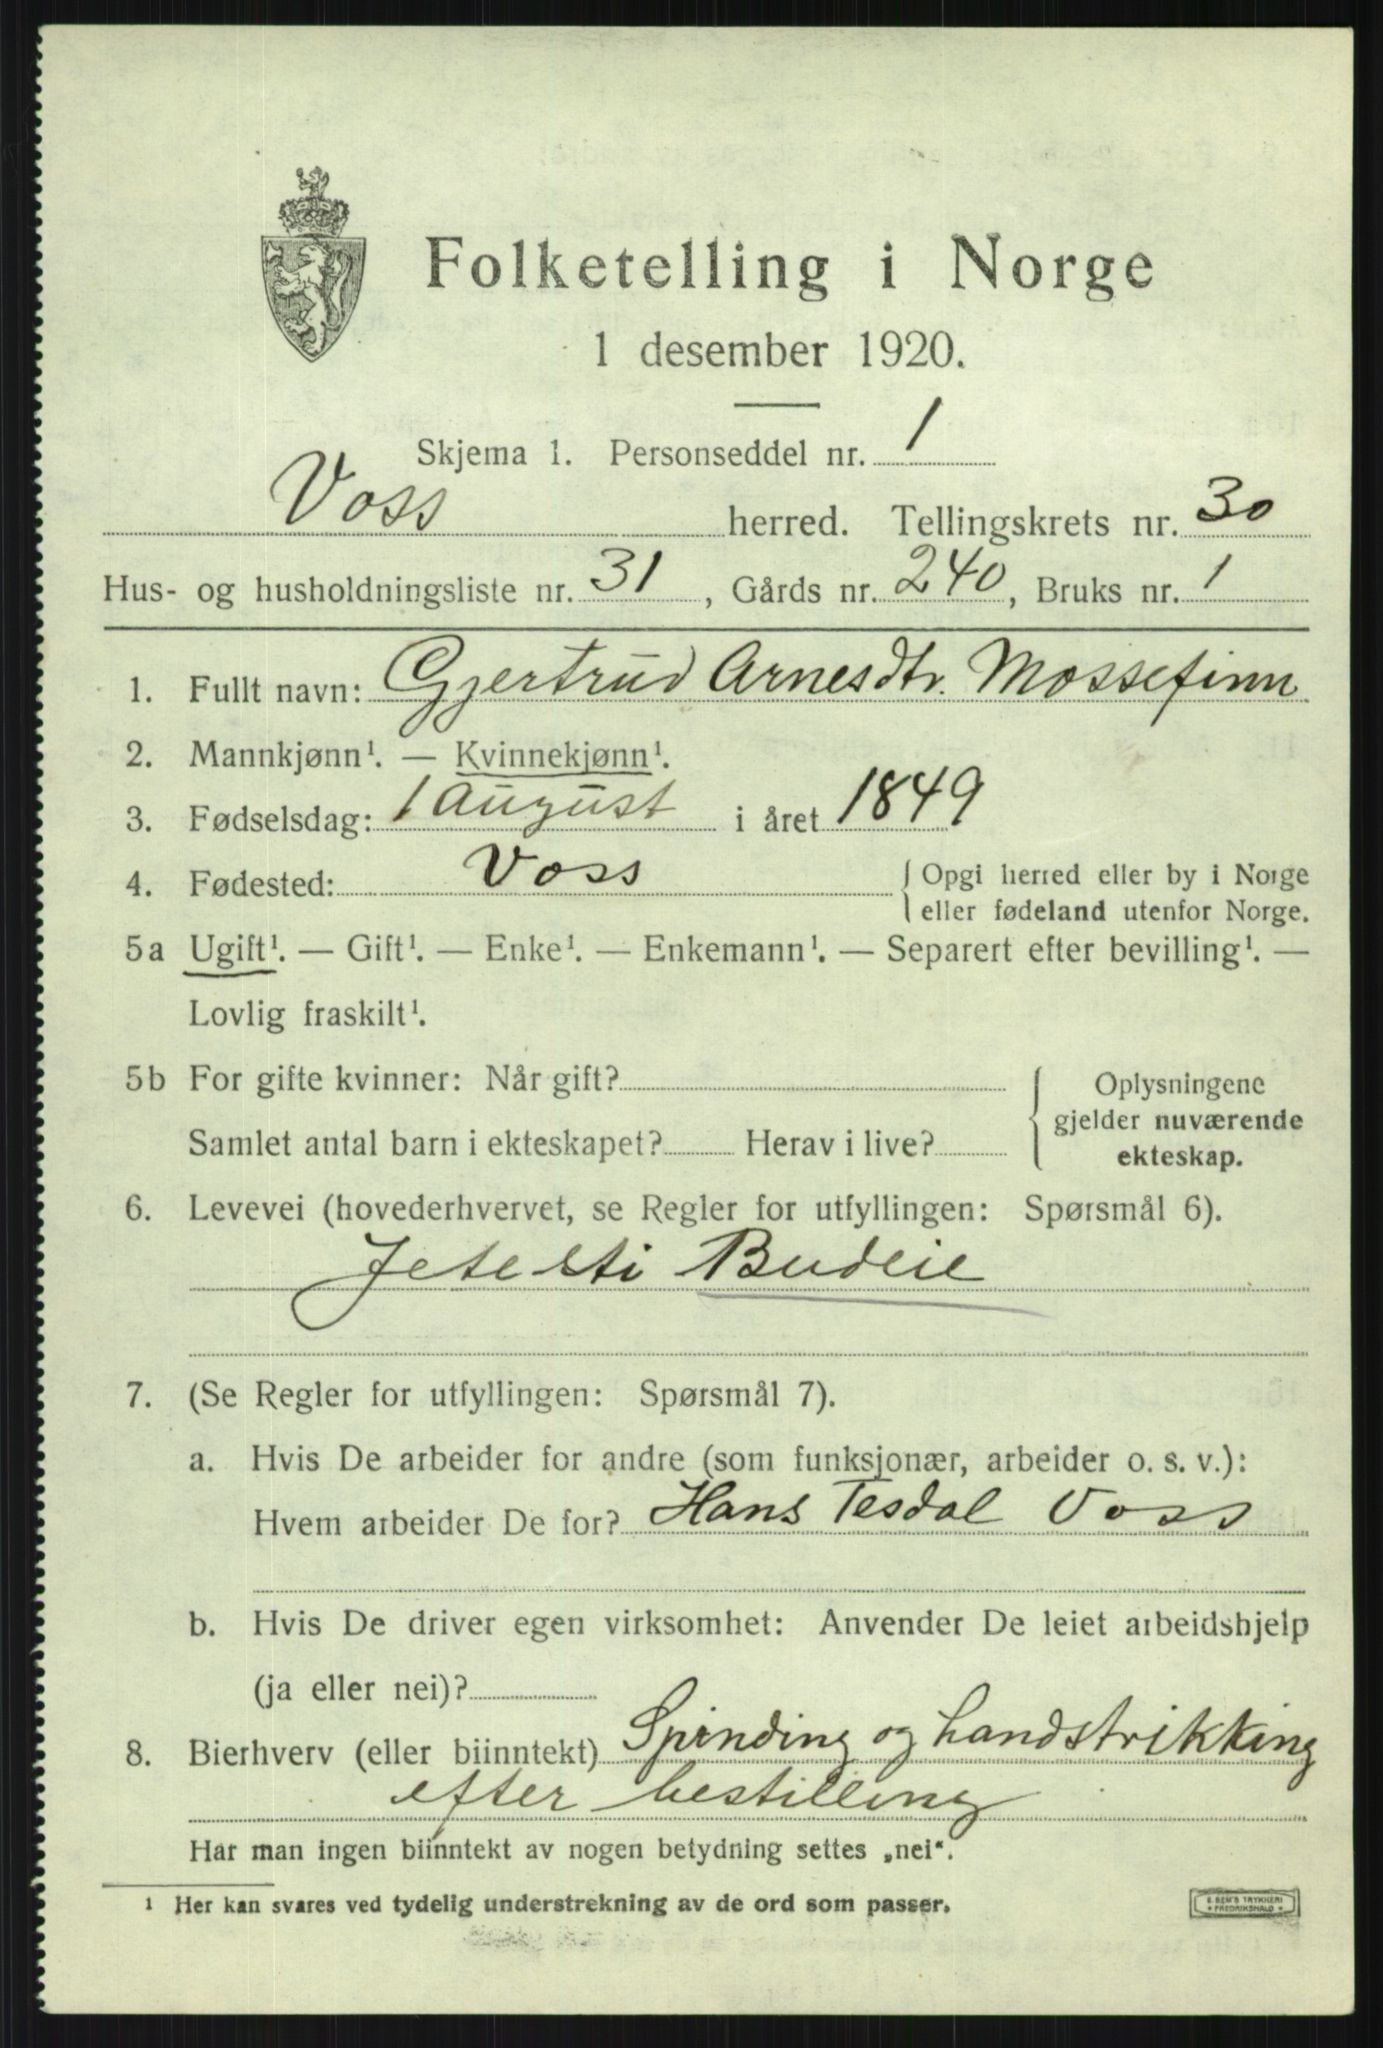 Folketelling i Norge
1 desember 1920.
Skjema 1. Personseddel nr. 1
Voss herred. Tellingskrets nr. 30
Hus- og husholdningsliste nr. 31, Gårds nr. 240, Bruks nr. 1
1. Fullt navn: Gjertrud Arnesdtr. Mossefinn
2. Mannkjønn¹. — Kvinnekjønn¹.
3. Fødselsdag: 1 August i året 1849
4. Fødested: Voss { Opgi herred eller by i Norge
eller fødeland utenfor Norge.
5a Ugift¹. — Gift¹. — Enke¹. — Enkemann¹. — Separert efter bevilling¹. —
Lovlig fraskilt¹.
5b For gifte kvinner: Når gift? { Oplysningene
gjelder nuværende
Samlet antal barn i ekteskapet? Herav i live?
ekteskap.
6. Levevei (hovederhvervet, se Regler for utfyllingen: Spørsmål 6).
Budeie
7. (Se Regler for utfyllingen: Spørsmål 7).
a. Hvis De arbeider for andre (som funksjonær, arbeider o. s. v.):
Hvem arbeider De for? Hans Tesdal Voss
b. Hvis De driver egen virksomhet: Anvender De leiet arbeidshjelp
(ja eller nei)?
8. Bierhverv (eller biinntekt) Spinding og handstrikking
efter bestilling
Har man ingen biinntekt av nogen betydning settes „nei".
¹ Her kan svares ved tydelig understrekning av de ord som passer.
E. SEM'S TRYKKERI
FREDRIKSHALD